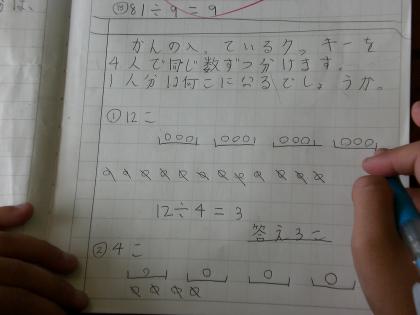 ⑬81÷9=9
かんの入っているクッキーを
4人で同じ数ずつ分けます。
1人分は何こになるでしょうか。
①12こ
12÷4=3
答え3こ
②4こ